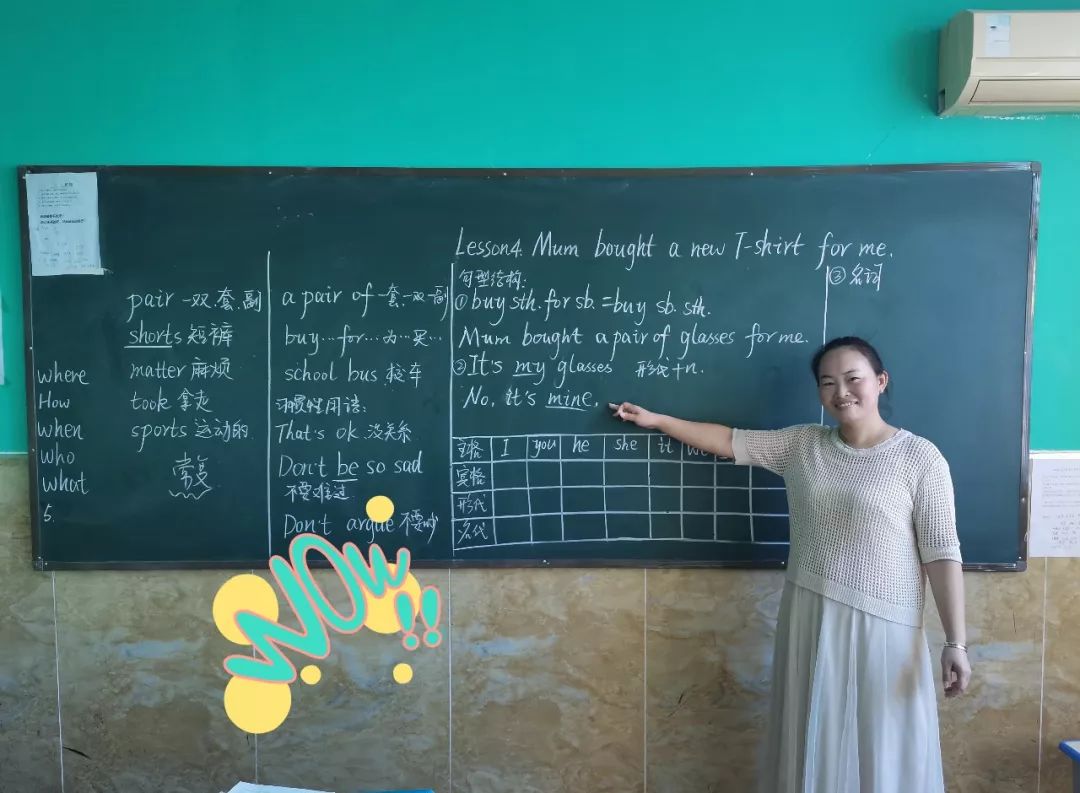 where
How
when
who
what
5.
pair 一双.套.副
shorts 短裤
matter 麻烦
took 拿走
sports 运动的
常复
a pair of 一套一双一副
buy…for…为…买…
school bus 校车
习惯性用语:
That's ok 没关系
Don't be so sad
不要难过
Don't argue 不要吵
Lesson4. Mum bought a new T-shirt for me.
句型结构:
①buy sth. for sb. =buy sb. sth.
Mum bought a pair of glasses for me.
②It's my glasses 形代+n.
No, it's mine.
主格 I you he she it we
宾格
形代
名代
③名词
WOW!!